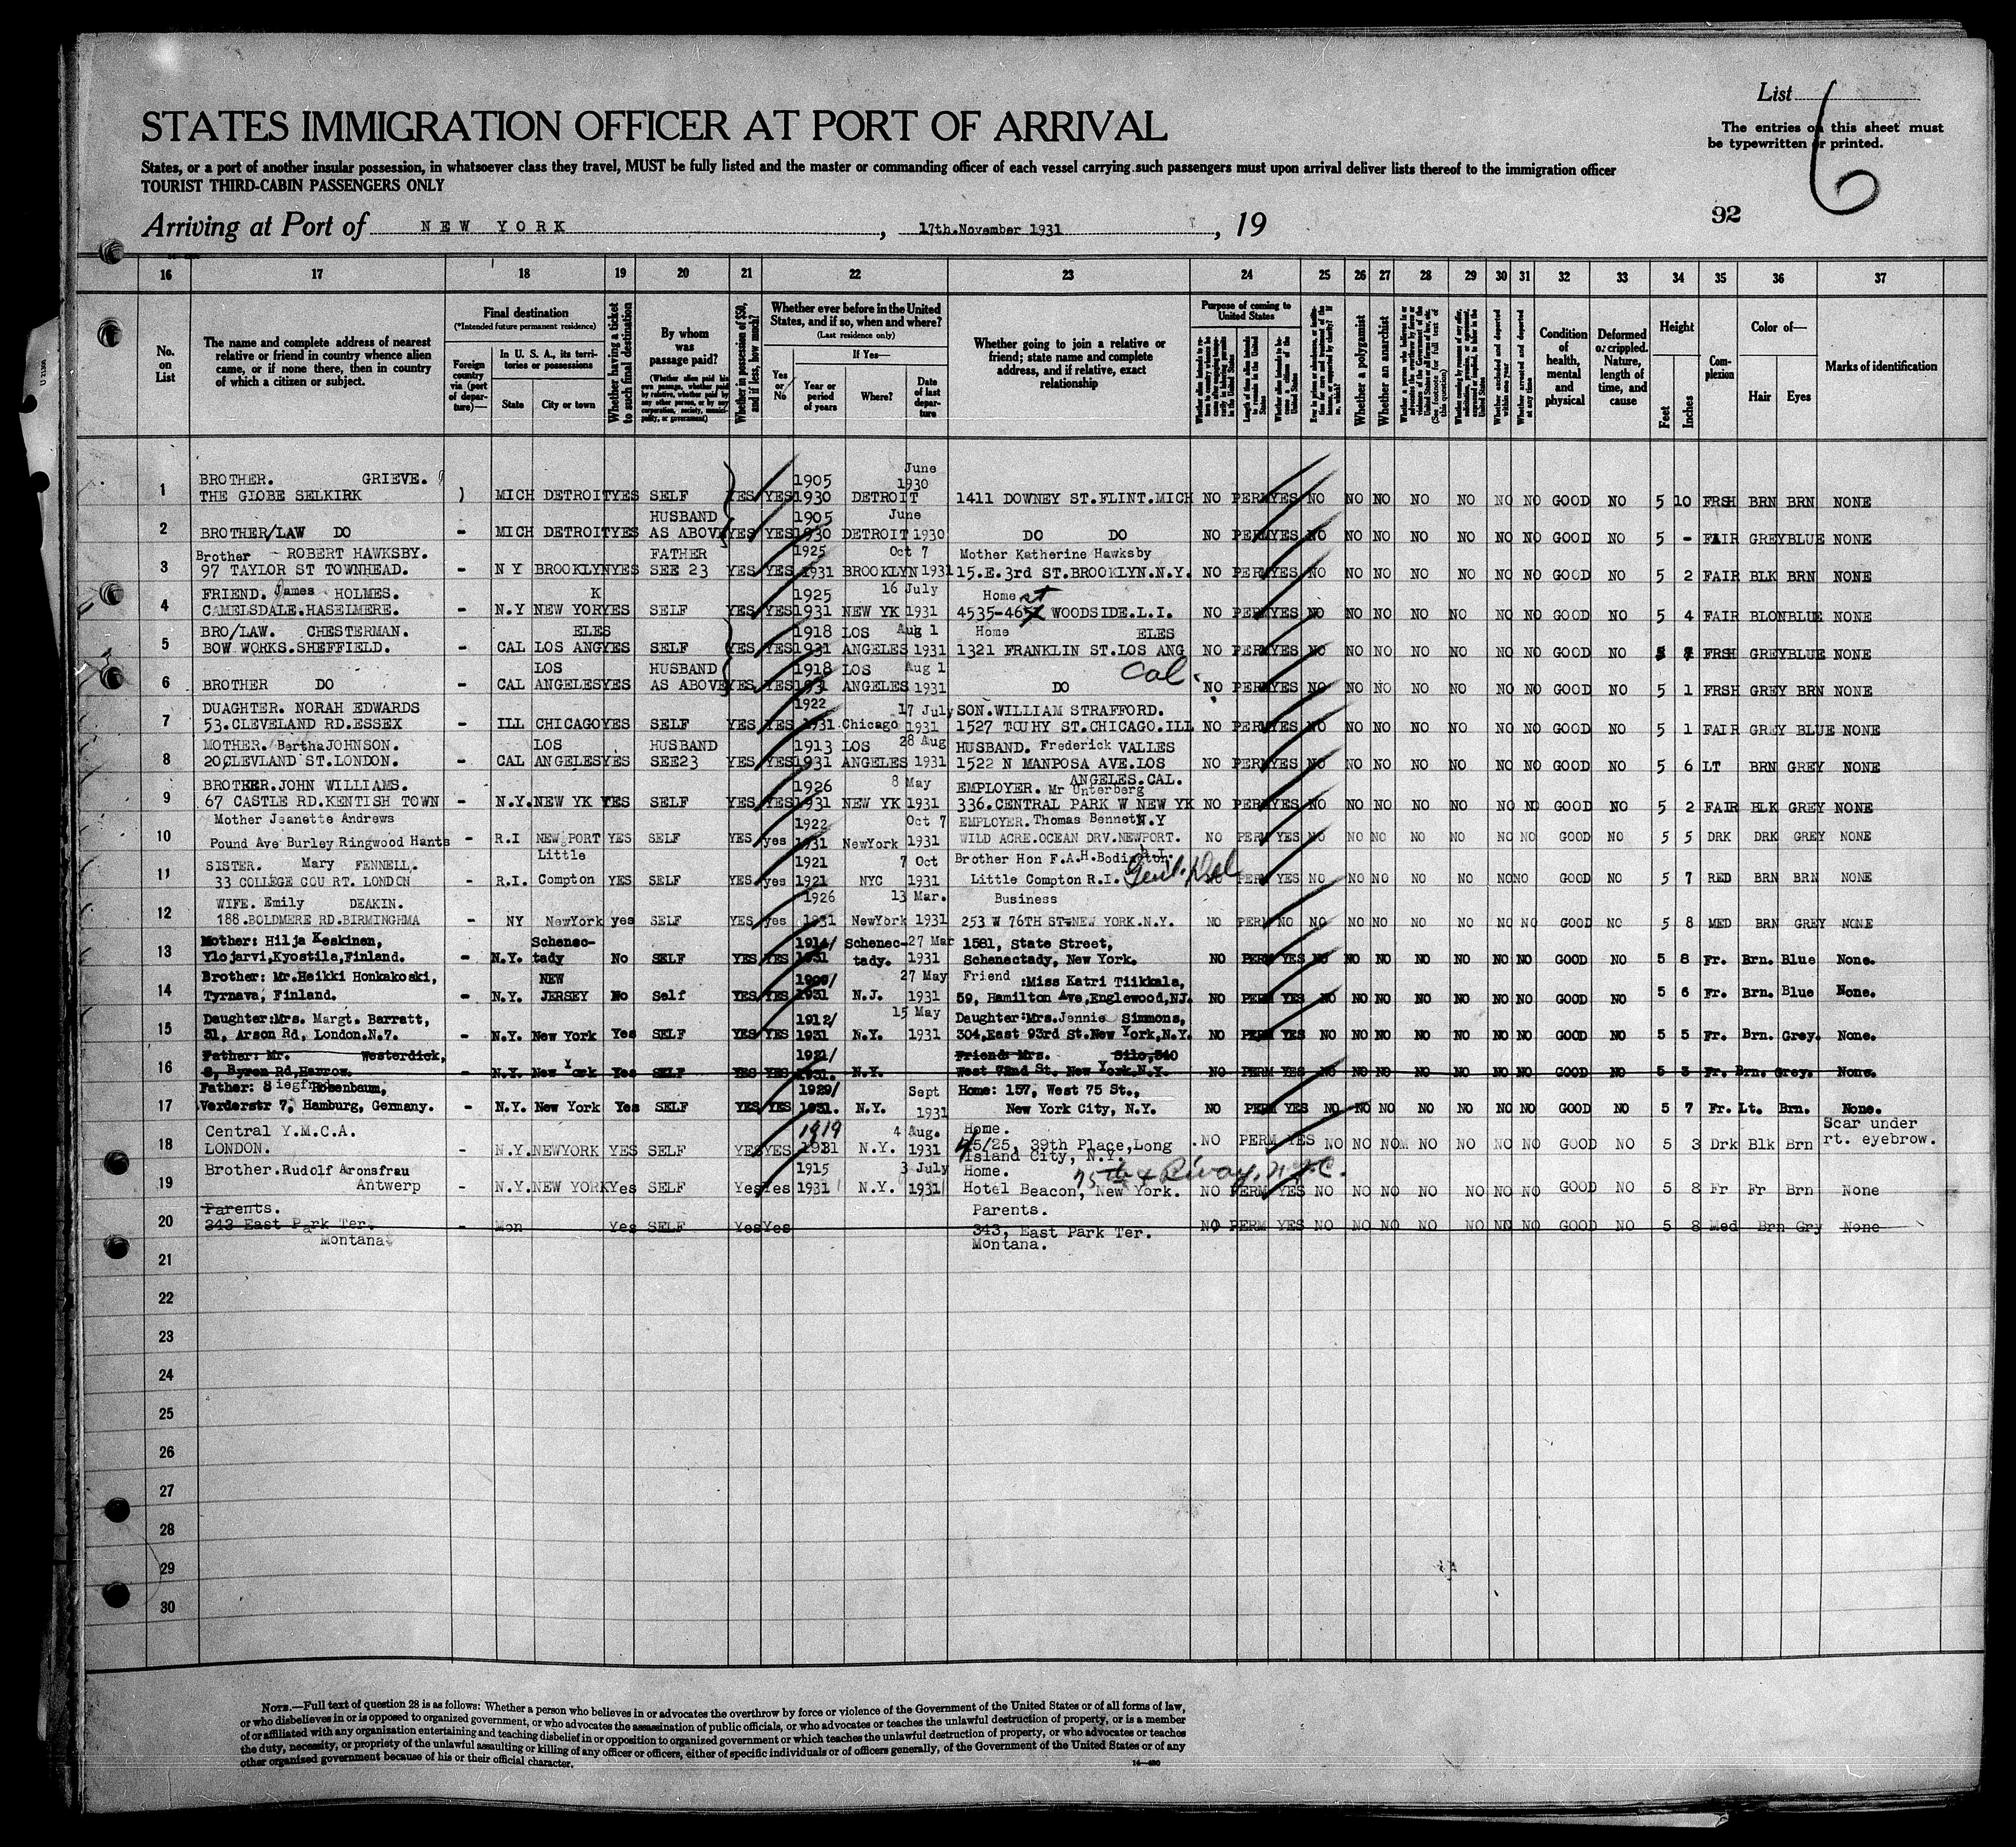 List
6
The entries on this sheet must
be typewritten or printed.
STATES IMMIGRATION OFFICER AT PORT OF ARRIVAL
States, or a port of another insular possession, in whatsoever class they travel, MUST be fully listed and the master or commanding officer of each vessel carrying such passengers must upon arrival deliver lists thereof to the immigration officer
TOURIST THIRD-CABIN PASSENGERS ONLY
92
Arriving at Port of NEW YORK, 17th.November 1931, 19
16 17 18 19 20 21 22 23 24 25 26 27 28 29 30 31 32 33 34 35 36 37
No. on List
The name and complete address of nearest relative or friend in country whence alien came, or if none there, then in country of which a citizen or subject.
Final destination
(*Intended future permanent residence)
Foreign country via (port of departure)—
In U. S. A., its territories or possessions
State City or town
Whether having a ticket to such final destination
By whom was passage paid?
(Whether alien paid his own passage, whether paid by relative, whether paid by any other person, or by any corporation, society, municipality, or government)
Whether in possession of $50, and if less, how much?
Whether ever before in the United States, and if so, when and where?
(Last residence only)
Yes or No
If Yes—
Year or period of years
Where?
Date of last departure
Whether going to join a relative or friend; state name and complete address, and if relative, exact relationship
Purpose of coming to United States
Whether a polygamist
Whether an anarchist
Condition of health, mental and physical
Deformed or crippled. Nature, length of time, and cause
Height
Feet Inches
Complexion
Color of—
Hair Eyes
Marks of identification
June
BROTHER. GRIEVE. 1905 1930
1 THE GLOBE SELKIRK ) MICH DETROIT YES SELF YES YES 1930 DETROIT 1411 DOWNEY ST.FLINT.MICH NO PERM YES NO NO NO NO NO NO NO GOOD NO 5 10 FRSH BRN BRN NONE
HUSBAND 1905 June
2 BROTHER/LAW DO - MICH DETROIT YES AS ABOVE YES YES 1930 DETROIT 1930 DO DO NO PERM YES NO NO NO NO NO NO NO GOOD NO 5 - FAIR GREY BLUE NONE
Brother - ROBERT HAWKSBY. FATHER 1925 Oct 7 Mother Katherine Hawksby
3 97 TAYLOR ST TOWNHEAD. - N Y BROOKLYN YES SEE 23 YES YES 1931 BROOKLYN 1931 15.E.3rd ST.BROOKLYN.N.Y. NO PERM YES NO NO NO NO NO NO NO GOOD NO 5 2 FAIR BLK BRN NONE
FRIEND. James HOLMES. K 1925 16 July Home st
4 CAMELSDALE.HASELMERE. - N.Y NEW YOR YES SELF YES YES 1931 NEW YK 1931 4535-46 WOODSIDE.L.I. NO PERM YES NO NO NO NO NO NO NO GOOD NO 5 4 FAIR BLON BLUE NONE
BRO/LAW. CHESTERMAN. ELES 1918 LOS Aug 1 Home ELES
5 BOW WORKS.SHEFFIELD. - CAL LOS ANG YES SELF YES YES 1931 ANGELES 1931 1321 FRANKLIN ST.LOS ANG NO PERM YES NO NO NO NO NO NO NO GOOD NO FRSH GREY BLUE NONE
LOS HUSBAND 1918 LOS Aug 1 Cal.
6 BROTHER DO - CAL ANGELES YES AS ABOVE YES YES 1931 ANGELES 1931 DO NO PERM YES NO NO NO NO NO NO NO GOOD NO 5 1 FRSH GREY BRN NONE
DUAGHTER. NORAH EDWARDS 1922 17 July SON.WILLIAM STRAFFORD.
7 53.CLEVELAND RD.ESSEX - ILL CHICAGO YES SELF YES YES 1931 Chicago 1931 1527 TOUHY ST.CHICAGO.ILL NO PERM YES NO NO NO NO NO NO NO GOOD NO 5 1 FAIR GREY BLUE NONE
MOTHER. Bertha JOHNSON. LOS HUSBAND 1913 LOS 28 Aug HUSBAND. Frederick VALLES
8 20CLEVLAND ST.LONDON. - CAL ANGELES YES SEE23 YES YES 1931 ANGELES 1931 1522 N MANPOSA AVE.LOS NO PERM YES NO NO NO NO NO NO NO GOOD NO 5 6 LT BRN GREY NONE
ANGELES.CAL.
BROTHER.JOHN WILLIAMS. 1926 8 May EMPLOYER. Mr Unterberg
9 67 CASTLE RD.KENTISH TOWN - N.Y. NEW YK YES SELF YES YES 1931 NEW YK 1931 336.CENTRAL PARK W NEW YK NO PERM YES NO NO NO NO NO NO NO GOOD NO 5 2 FAIR BLK GREY NONE
Mother Jeanette Andrews 1922 Oct 7 EMPLOYER.Thomas Bennett N.Y
10 Pound Ave Burley Ringwood Hants - R.I NEW PORT YES SELF YES yes 1931 NewYork 1931 WILD ACRE.OCEAN DRV.NEWPORT. NO PERM YES NO NO NO NO NO NO NO GOOD NO 5 5 DRK DRK GREY NONE
SISTER. Mary FENNELL. Little 1921 7 Oct Brother Hon F.A.H.Bodington.
11 33 COLLEGE COURT. LONDON - R.I. Compton YES SELF YES yes 1921 NYC 1931 Little Compton R.I. PERM YES NO NO NO NO NO NO NO GOOD NO 5 7 RED BRN BRN NONE
WIFE. Emily DEAKIN. 1926 13 Mar. Business
12 188.BOLDMERE RD.BIRMINGHMA - NY NewYork yes SELF YES yes 1931 NewYork 1931 253 W 76TH ST-NEW YORK.N.Y. NO PERM NO NO NO NO NO NO NO NO GOOD NO 5 8 MED BRN GREY NONE
Mother: Hilja Keskinen, Schenec- 1914/ Schenec- 27 Mar 1581, State Street,
13 Ylojarvi,Kyostila,Finland. - N.Y. tady No SELF YES YES 1931 tady. 1931 Schenectady, New York. NO PERM YES NO NO NO NO NO NO NO GOOD NO 5 8 Fr. Brn. Blue None.
Brother: Mr.Heikki Honkakoski, NEW 27 May Friend :Miss Katri Tiikkala,
14 Tyrnava, Finland. - N.Y. JERSEY No Self YES YES 1931 N.J. 1931 59, Hamilton Ave,Englewood,NJ. NO PERM YES NO NO NO NO NO NO NO GOOD NO 5 6 Fr. Brn. Blue None.
Daughter:Mrs. Margt. Barratt, 1912/ 15 May Daughter:Mrs.Jennie Simmons,
15 31, Arson Rd, London.N.7. - N.Y. New York Yes SELF YES YES 1931 N.Y. 1931 304,East 93rd St.New York,N.Y. NO PERM YES NO NO NO NO NO NO NO GOOD NO 5 5 Fr. Brn. Grey. None.
Father: Mr. Westerdick, 1921/ Friend: Mrs. Silo,340
16 8, Byron Rd,Harrow. - N.Y. New York Yes SELF YES YES 1931. N.Y. West 72nd St. New York,N.Y. NO PERM YES NO NO NO NO NO NO NO GOOD NO 5 3 Fr. Brn. Grey. None.
Father: Siegfried Rosenbaum, 1929/ Sept Home: 157, West 75 St.,
17 Verderstr 7, Hamburg, Germany. - N.Y. New York Yes SELF YES YES 1931. N.Y. 1931 New York City, N.Y. NO PERM YES NO NO NO NO NO NO NO GOOD NO 5 7 Fr. Lt. Brn. None.
Central Y.M.C.A. 1919 4 Aug. Home. Scar under
18 LONDON. - N.Y. NEWYORK YES SELF YES YES 1931 N.Y. 1931 45/25, 39th Place,Long NO PERM YES NO NO NO NO NO NO NO GOOD NO 5 3 Drk Blk Brn rt. eyebrow.
Island City, N.Y.
Brother.Rudolf Aronsfrau 1915 3 July Home. 75th & B'way, N.Y.C.
19 Antwerp - N.Y. NEW YORK Yes SELF Yes Yes 1931 N.Y. 1931 Hotel Beacon, New York. NO PERM YES NO NO NO NO NO NO NO GOOD NO 5 8 Fr Fr Brn None
Parents. Parents.
20 343 East Park Ter. - Mon Yes SELF Yes Yes 343, East Park Ter. NO PERM YES NO NO NO NO NO NO NO GOOD NO 5 8 Med Brn Gry None
Montana. Montana.
21
22
23
24
25
26
27
28
29
30
NOTE.—Full text of question 28 is as follows: Whether a person who believes in or advocates the overthrow by force or violence of the Government of the United States or of all forms of law,
or who disbelieves in or is opposed to organized government, or who advocates the assassination of public officials, or who advocates or teaches the unlawful destruction of property, or is a member
of or affiliated with any organization entertaining and teaching disbelief in or opposition to organized government or which teaches the unlawful destruction of property, or who advocates or teaches
the duty, necessity, or propriety of the unlawful assaulting or killing of any officer or officers, either of specific individuals or of officers generally, of the Government of the United States or of any
other organized government because of his or their official character.